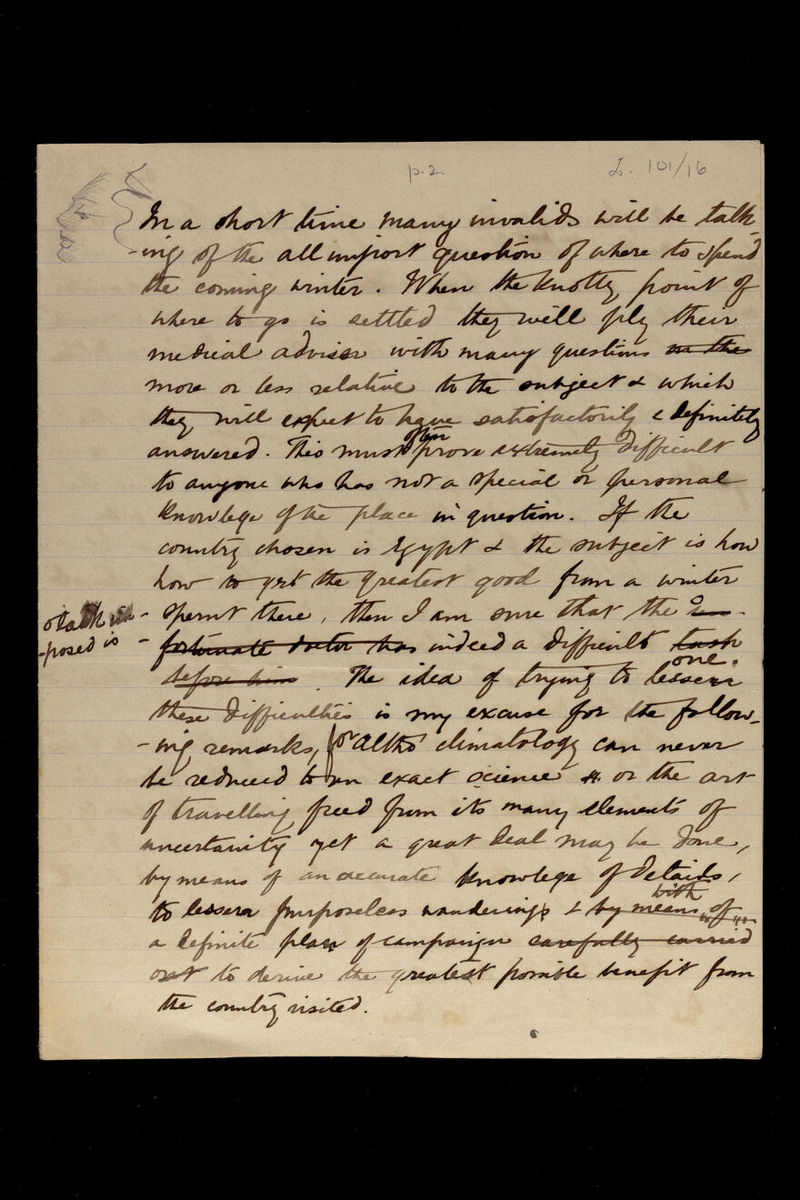 p.2
L. 101/16
In a short time many invalids will be talk-
-ing of the all import question of where to spend
the coming winter. When the knotty point of
where to go is settled they will ply their
medical adviser with many questions in the
more or less relative to the subject & which
they will expect to have satisfactorily & definitely
answered. This must often prove extremely difficult
to anyone who has not a special or personal
knowlege of the place in question. If the
country chosen is Egypt & the subject is how
how to get the greatest good from a winter
spent there, then I am sure that the
task im-
-posed is
fortunate doctor has indeed a difficult task
before him one. The idea of trying to lessen
these difficulties is my excuse for the follow-
-ing remarks, for altho' climatology can never
be reduced to an exact science or the art
of travelling freed from its many elements of
uncertainity yet a great deal may be done,
by means of an accurate knowlege of details,
to lessen purposeless wanderings & by means of with
a definite plan of campaign carefully carried
out to derive the greatest possible benefit from
the country visited.